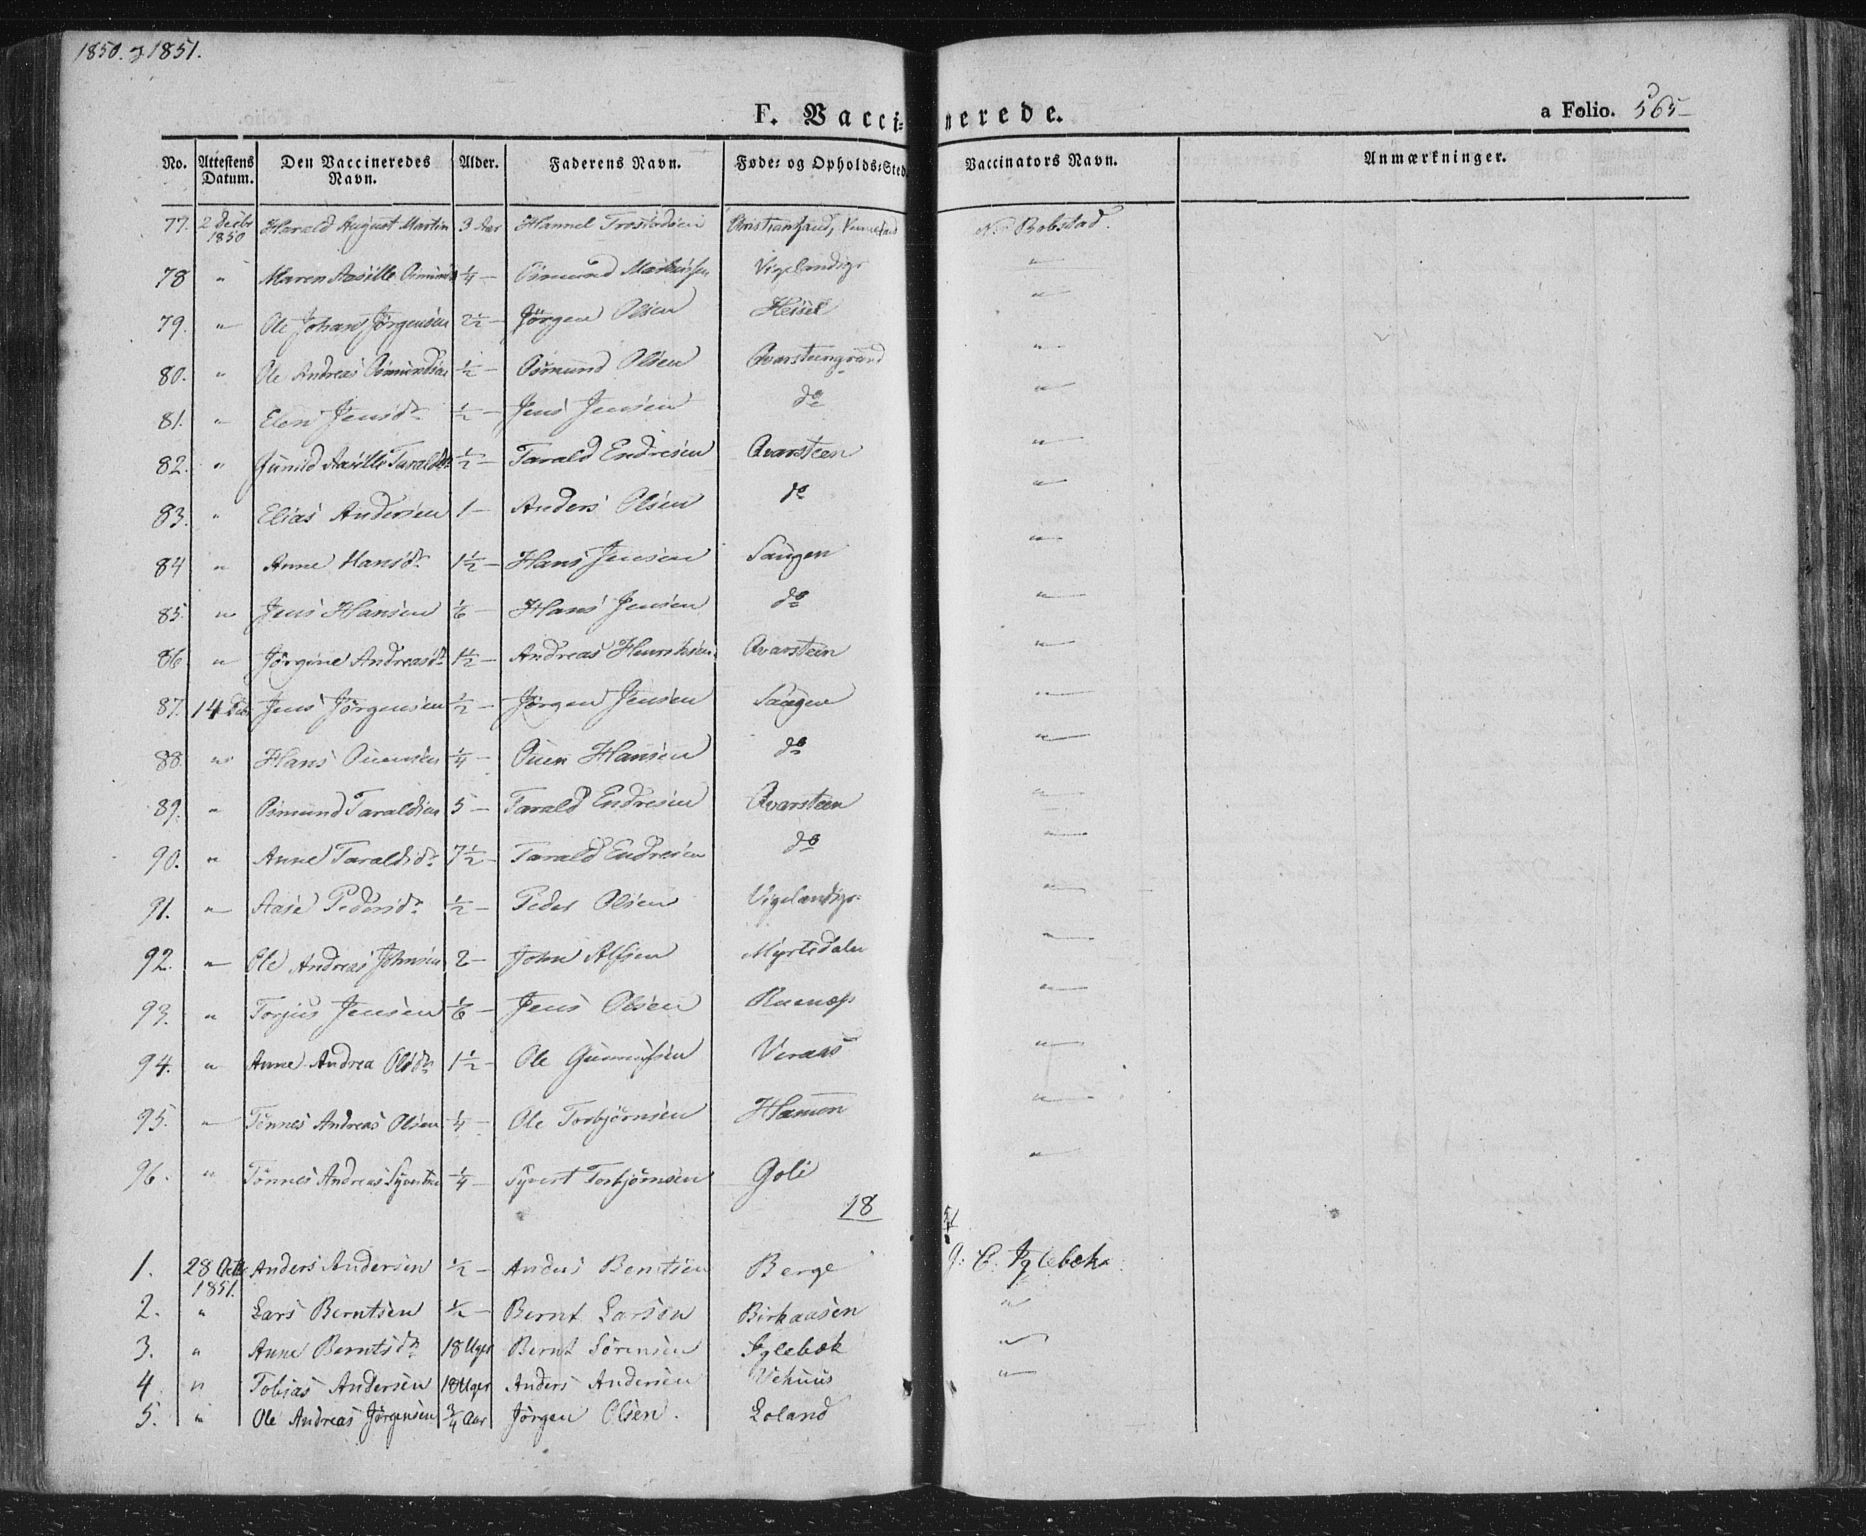 1850. & 1851.
F. Vaccinerede.
a Folio. 565
No. Attestens Datum. Den Vaccineredes Navn. Alder. Faderens Navn. Føde- og Opholds-Sted Vaccinators Navn. Anmærkninger.
77. 2 Decbr 1850 Harald August Martin 3 Aar Christiansand, Bobstad.
78 " Maren Aasille 1/4 — Osmund Vigelandsgr "
79. " Ole Johan Jørgensen 2 1/2 — Jørgen Olsen Heisel "
80. " Ole Andreas Osmundsen 1/2 — Osmund Olsen Qvarsteengrund "
81. " Elen Jensdr. 1/2 — Jens Jensen do "
82. " Gunild Aasille Taraldsdr 1/2 — Tarald Endresen Qvarsteen "
83. " Elias Andersen 1 — Anders Olsen do "
84 " Anne Hansdr. 1 1/2 — Hans Jensen Saugen "
85. " Jens Hansen 1/6 — Hans Jensen do "
86 " Jørgine Andreasdr 1 1/2 — Andreas Henriksen Qvarstein "
87. 14 Dec. Jens Jørgensen 1/2 — Jørgen Jensen Saugen "
88. " Hans Ouensen 1/4 — Ouen Hansen do "
89. " Osmund Taraldsen 5 — Tarald Endresen Qvarsteen "
90. " Anne Taraldsdr. 7 1/2 — Tarald Endresen do "
91. " Aase Pedersdr. 1/2 — Peder Olsen Vigelandsgr. "
92. " Ole Andreas Johnsen 2 — John Alfsen Myrtedalen "
93. " Torjus Jensen 1/6 — Jens Olsen "
94. " Anne Andrea Olsdr. 1 1/2 — Ole Gunnufsen Veraas "
95. " Tønnes Andreas Olsen 1/4 — Ole Torbjørnsen Hamren "
96. " Tønnes Andreas Syvertsen 1/4 — Syvert Torbjørnsen Goli "
1851
1. 28 Octbr 1851. Anders Andersen 1/2 — Anders Berntsen Berge G. C. Iglebæk.
2. " Lars Berntsen 1/2 — Bernt Larsen Birkaasen "
3. " Anne Berntsdr. 18 Uger Bernt Sørensen Iglebæk "
4 " Tobias Andersen 18 Uger Anders Andersen Vehuus "
5. " Ole Andreas Jørgensen 3/4 Aar Jørgen Olsen. Loland